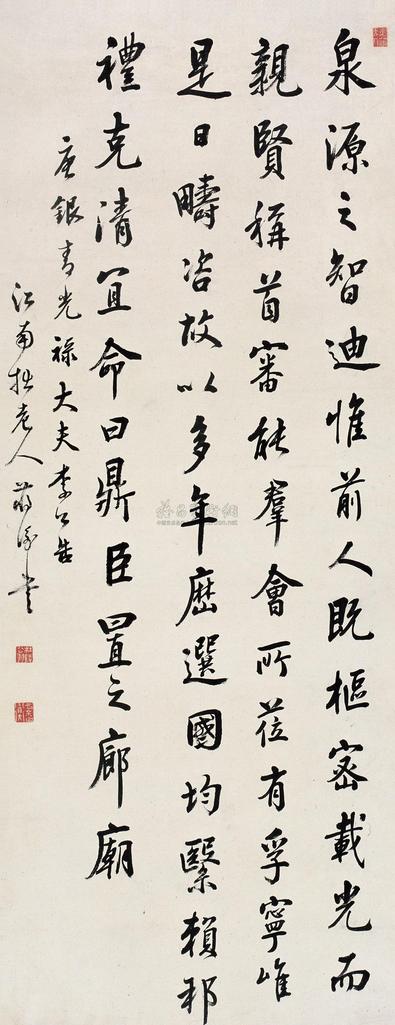 泉源之智迪惟前人既樞密載光而
親賢稱首審能羣會所莅有孚寧唯
是日疇咨故以多年歷選國均緊賴邪
禮克清宜命曰鼎臣置之廊廟
唐銀青光祿大夫李公告
江南拙老人蔣衡書